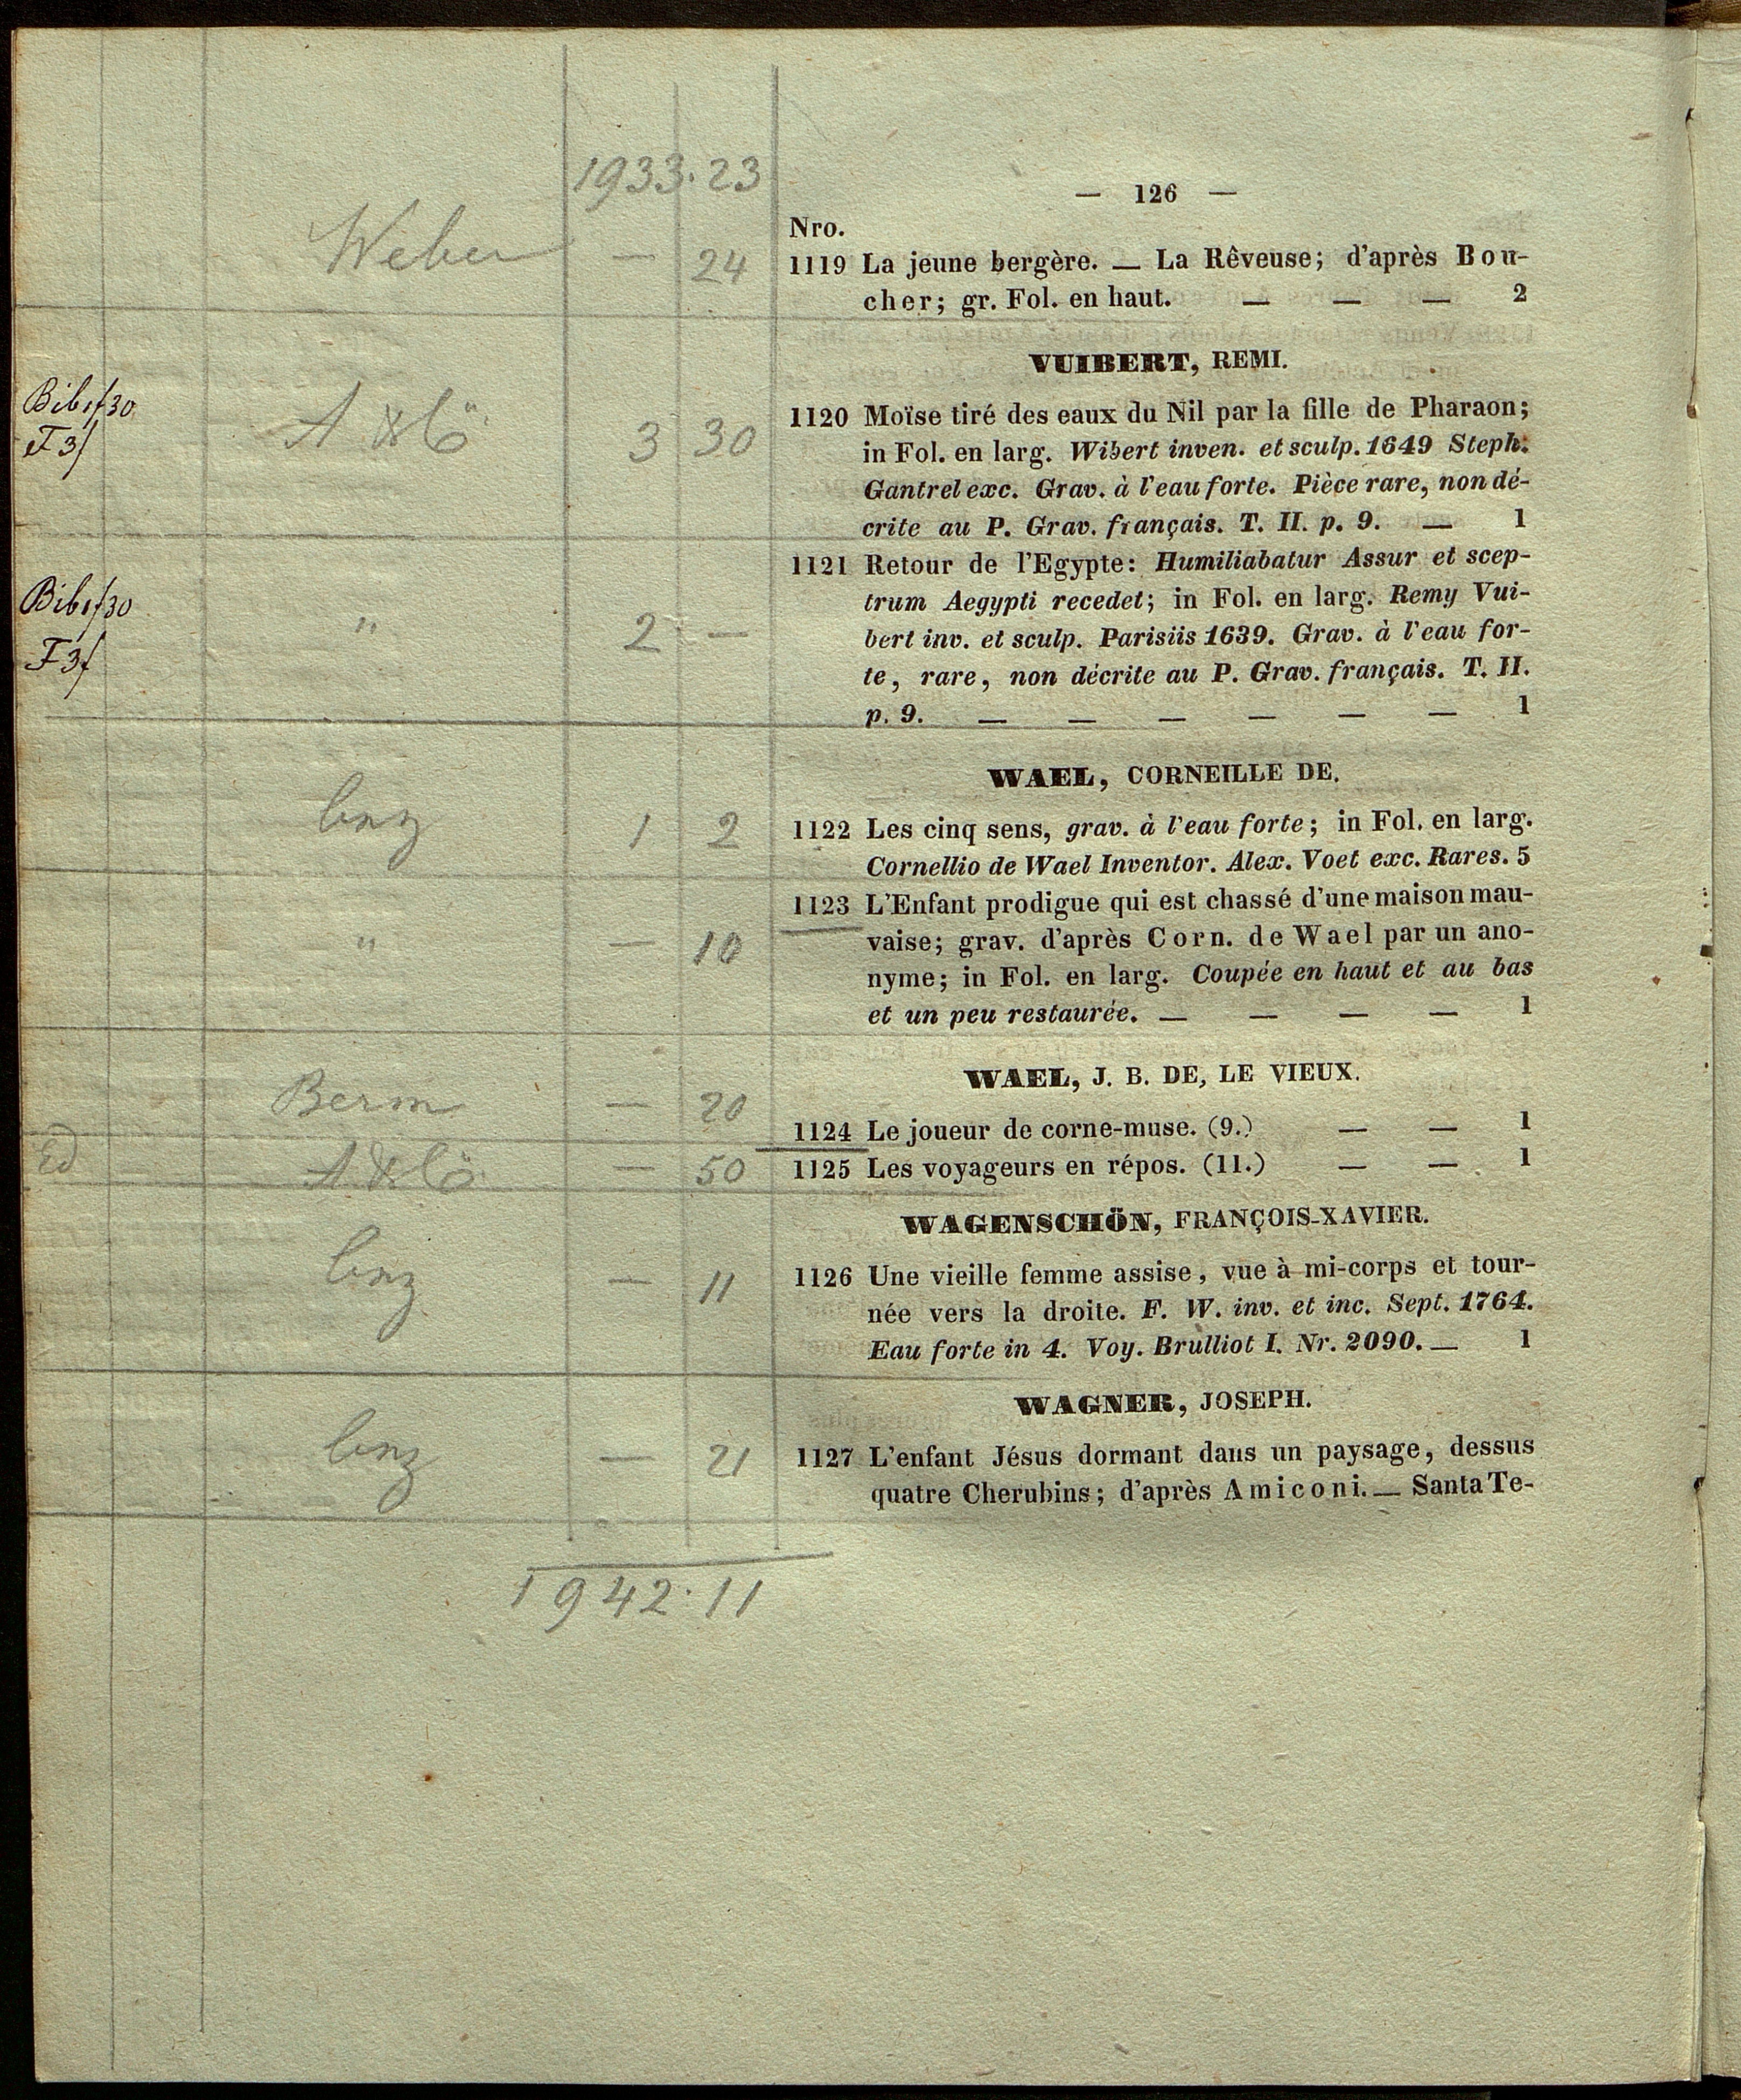 1933.23
— 126 —
Nro.
Weber — 24
1119 La jeune bergère. — La Rêveuse; d'après Bou-
cher; gr. Fol. en haut. — — — 2
VUIBERT, REMI.
Bib 1f30
F 3f
3 30
1120 Moïse tiré des eaux du Nil par la fille de Pharaon;
in Fol. en larg. Wibert inven. et sculp. 1649 Steph.
Gantrel exc. Grav. à l'eau forte. Pièce rare, non dé-
crite au P. Grav. français. T. II. p. 9. — 1
Bib 1f30
F 3f
" 2 —
1121 Retour de l'Egypte: Humiliabatur Assur et scep-
trum Aegypti recedet; in Fol. en larg. Remy Vui-
bert inv. et sculp. Parisiis 1639. Grav. à l'eau for-
te, rare, non décrite au P. Grav. français. T. II.
p. 9. — — — — — — 1
WAEL, CORNEILLE DE.
1 2
1122 Les cinq sens, grav. à l'eau forte; in Fol. en larg.
Cornellio de Wael Inventor. Alex. Voet exc. Rares. 5
" — 10
1123 L'Enfant prodigue qui est chassé d'une maison mau-
vaise; grav. d'après Corn. de Wael par un ano-
nyme; in Fol. en larg. Coupée en haut et au bas
et un peu restaurée. — — — — 1
WAEL, J. B. DE, LE VIEUX.
Berm — 20
1124 Le joueur de corne-muse. (9.) — — 1
Ed — 50
1125 Les voyageurs en répos. (11.) — — 1
WAGENSCHÖN, FRANÇOIS-XAVIER.
— 11
1126 Une vieille femme assise, vue à mi-corps et tour-
née vers la droite. F. W. inv. et inc. Sept. 1764.
Eau forte in 4. Voy. Brulliot I. Nr. 2090. — 1
WAGNER, JOSEPH.
— 21
1127 L'enfant Jésus dormant dans un paysage, dessus
quatre Cherubins; d'après Amiconi. — Santa Te-
1942.11